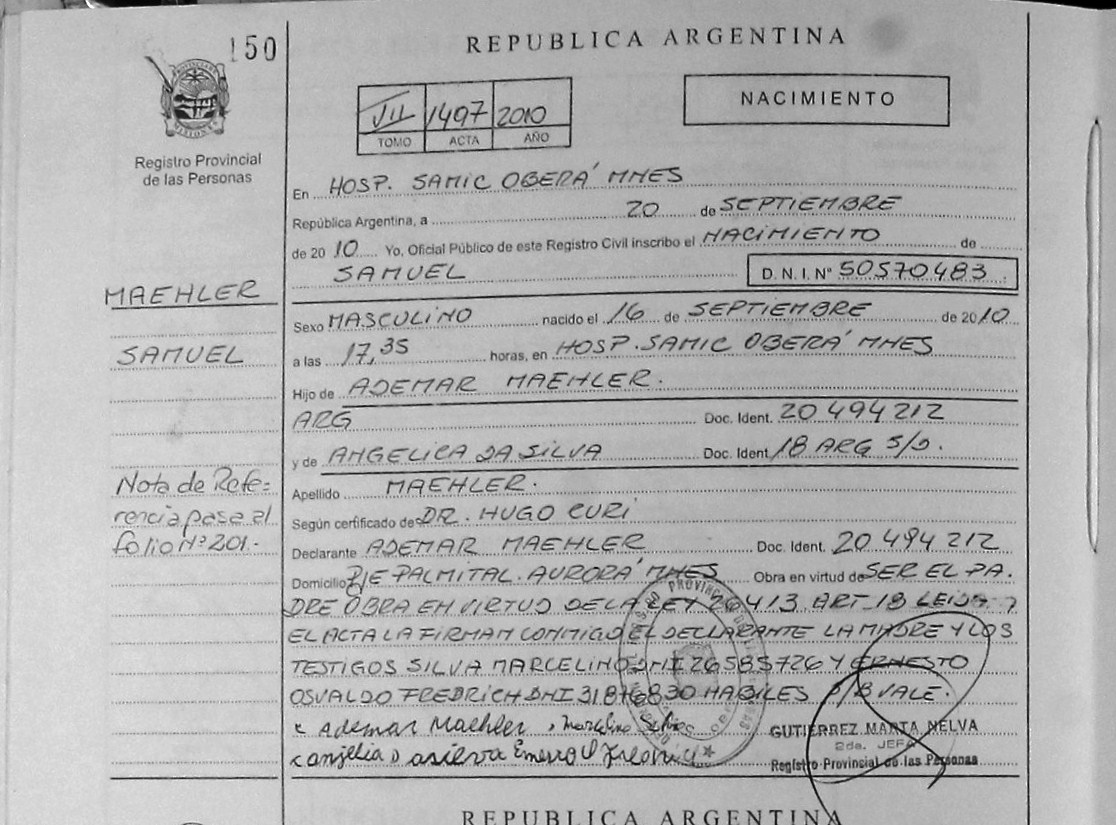 150
REPUBLICA ARGENTINA
PROVINCIA DE MISIONES
Registro Provincial
de las Personas
III 1497 2010
TOMO ACTA AÑO
NACIMIENTO
En HOSP. SAMIC OBERÁ MNES
República Argentina, a 20 de SEPTIEMBRE
de 2010 Yo, Oficial Público de este Registro Civil inscribo el NACIMIENTO de
SAMUEL D.N.I. N° 50570483
MAEHLER
SAMUEL
Sexo MASCULINO nacido el 16 de SEPTIEMBRE de 2010
a las 17,35 horas, en HOSP. SAMIC OBERÁ MNES
Hijo de ADEMAR MAEHLER.
ARG Doc. Ident. 20 494 212
y de ANGELICA DA SILVA Doc. Ident. 18 ARG S/D.
Nota de Refe=
rencia pase al
folio Nº 201.-
Apellido MAEHLER.
Según certificado de DR. HUGO CURI
Declarante ADEMAR MAEHLER Doc. Ident. 20 494 212
Domicilio PJE PALMITAL. AURORA MNES Obra en virtud de SER EL PA.
DRE OBRA EN VIRTUD DE LA LEY 20413 ART 18 LEIDA
EL ACTA LA FIRMAN CONMIGO EL DECLARANTE LA MADRE Y LOS
TESTIGOS SILVA MARCELINO DNI 26585726 Y ERNESTO
OSVALDO FREDRICH DNI 31876830 HABILES P/B VALE.
Ademar Maehler
GUTIERREZ MARTA NELVA
2da. JEFA
Registro Provincial de las Personas
REPUBLICA ARGENTINA